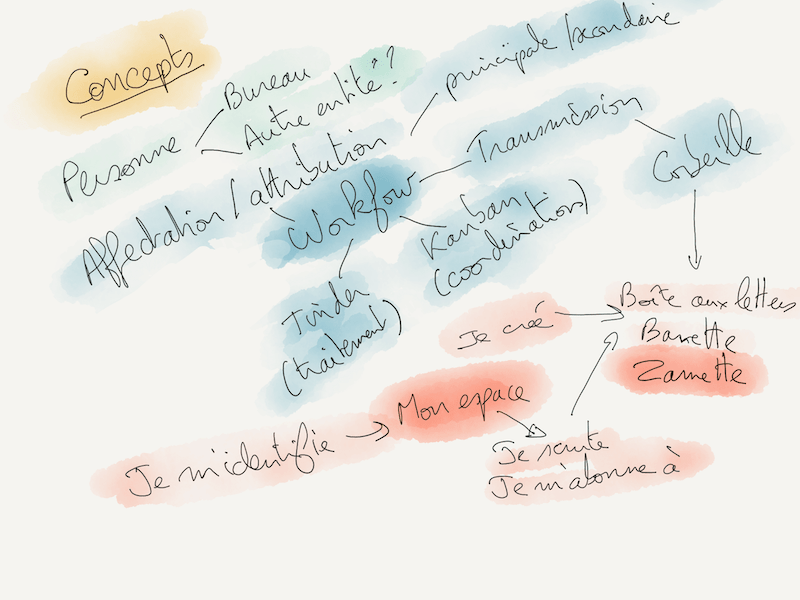 Concepts
Personne
Bureau
Autre entité ?
principale / secondaire
Affectation / attribution
Workflow
Transmission
Corbeille
Kanban
(coordination)
Tinder
(traitement)
Boîte aux lettres
Bannette
Zannette
Je créé
Mon espace
Je m'identifie
Je scrute
Je m'abonne à